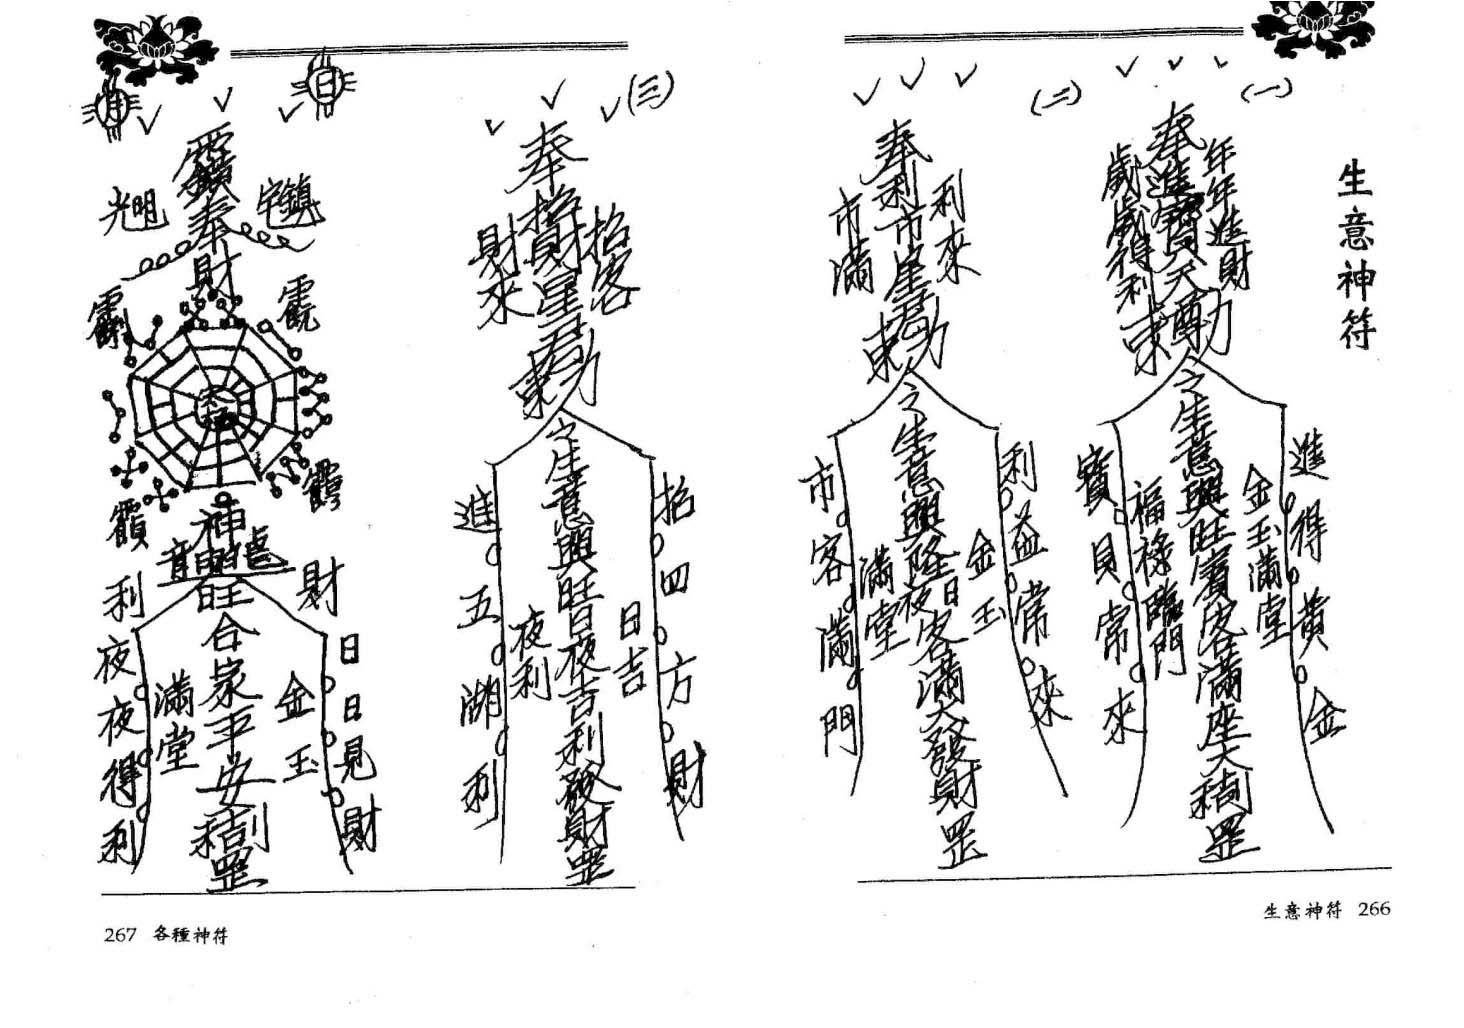 生意神符
(一)
奉進寶
年年進財
歲歲得利
之生意興旺賓客滿座大
金玉滿堂
福祿臨門
進得黃金
寶貝常來
罡
(二)
奉利市星君
利來
市滿
之生意興隆日夜客滿大發財罡
金玉
滿堂
利益常來
市客滿門
生意神符 266
(三)
奉招財星君
招客
財來
之生意興旺日夜吉利發財罡
日吉
夜利
招四方財
進五湖利
日
月
奉財
鎮宅
光明
太極
神
旺合家平安
財
利
金玉
滿堂
日日見財
夜夜得利
罡
267 各種神符